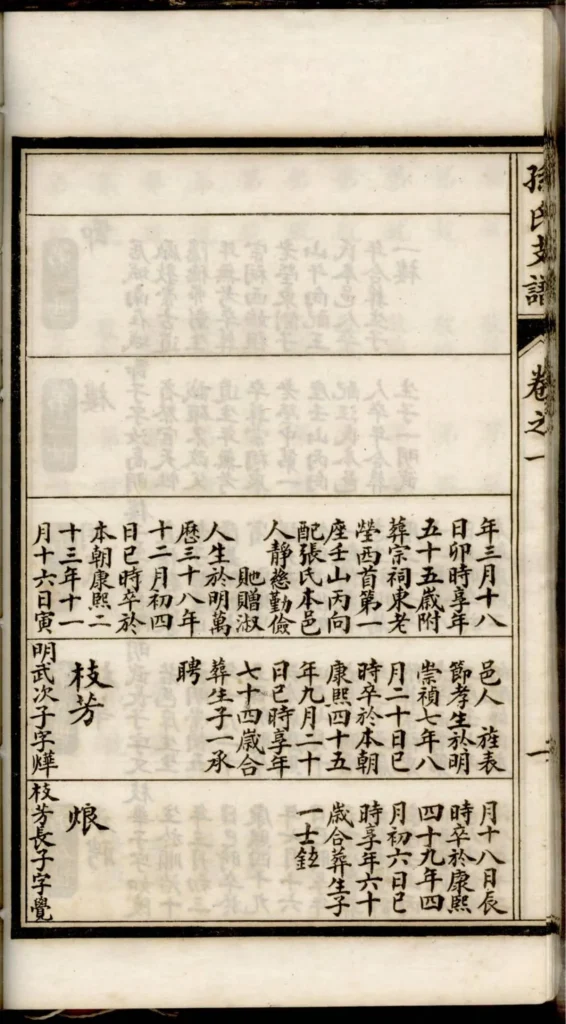 孫氏支譜
卷之一
一
年三月十八
日卯時享年
五十五歲附
葬宗祠東老
塋西首第一
座壬山丙向
配張氏本邑
人靜慈勤儉
貤贈淑
人生於明萬
曆三十八年
十二月初四
日巳時卒於
本朝康熙二
十三年十一
月十六日寅
邑人 旌表
節孝生於明
崇禎七年八
月二十日巳
時卒於本朝
康熙四十五
年九月二十
日巳時享年
七十四歲合
葬生子一承
聘
枝芳
明武次子字燁
月十八日辰
時卒於康熙
四十九年四
月初六日巳
時享年六十
歲合葬生子
一士鈺
烺
枝芳長子字覺